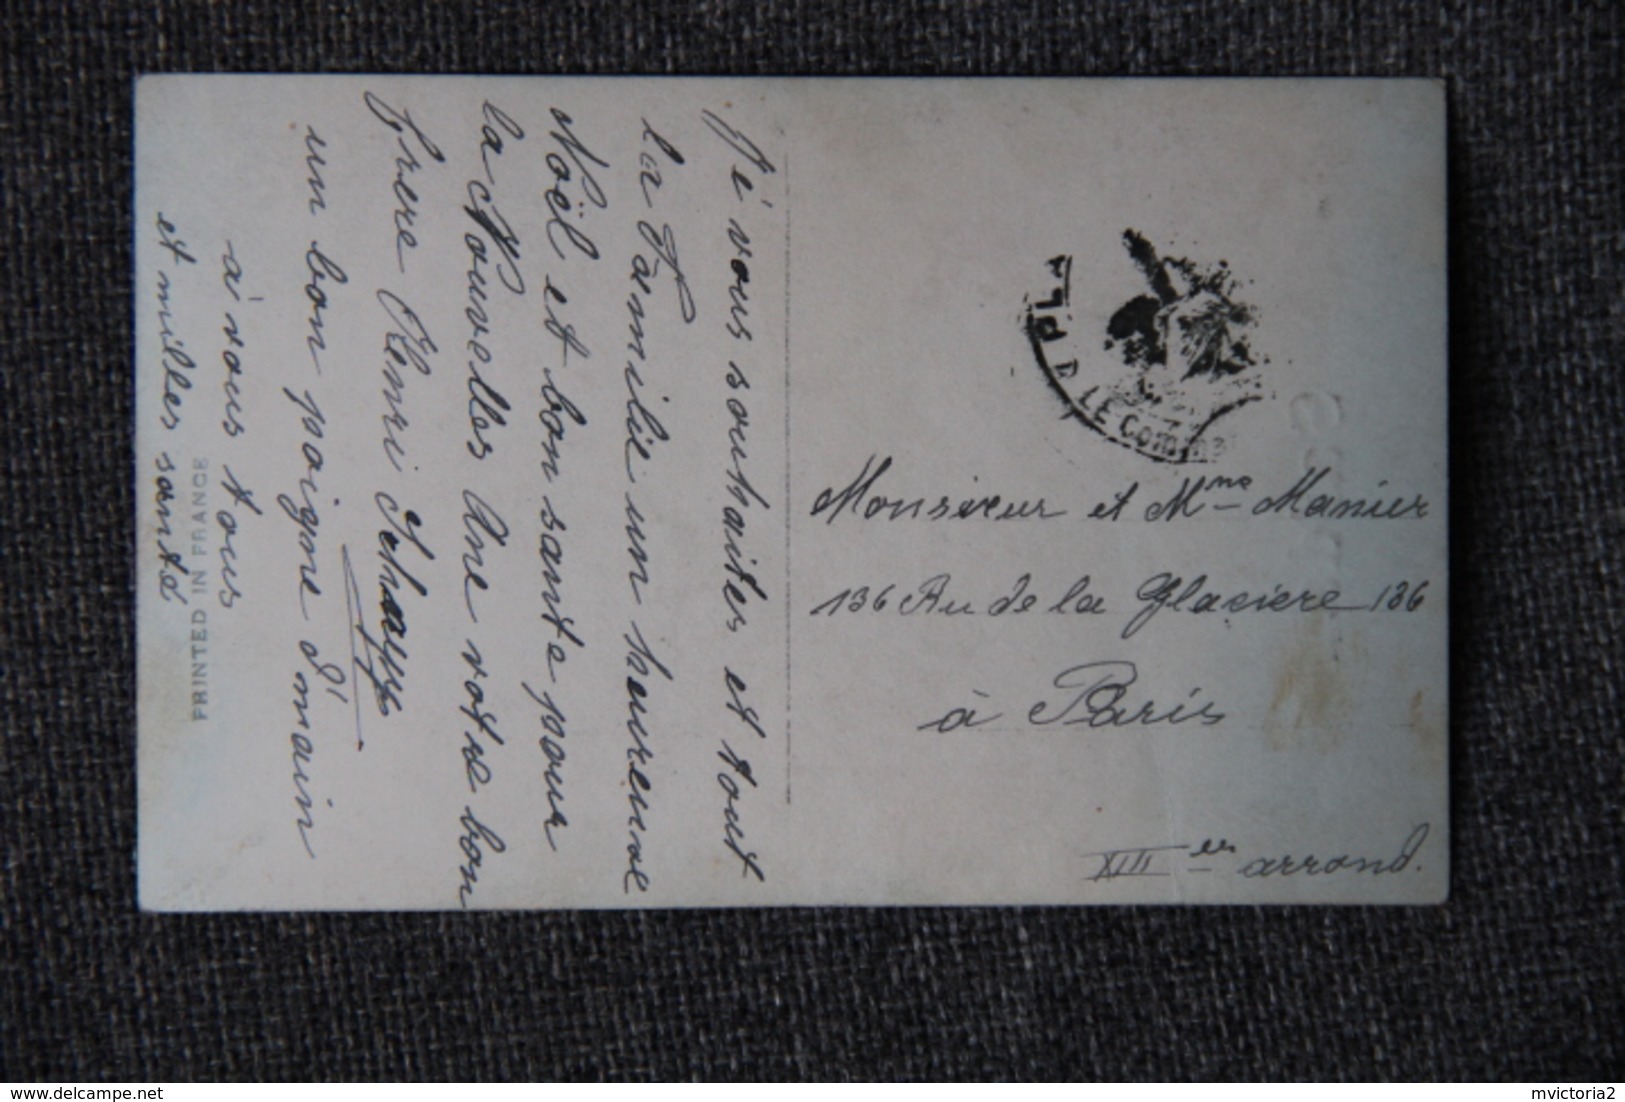 Je vous souhaites et tout
la Familie un heureuse
Noël et bon sante pour
la Nouvelles Ane votre bon
frere Henri
un bon poigne d'main
à vous tous
et milles sante
PRINTED IN FRANCE
PLA
LE Comma
Monsieur et Mme Manier
136 Ru de la Glaciere 136
à Paris
XIII er arrond.
mvictoria2